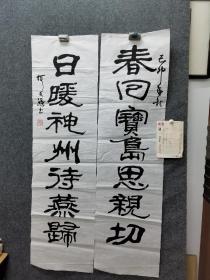 春回寶島思親切
己卯年秋
日暖神州待燕歸